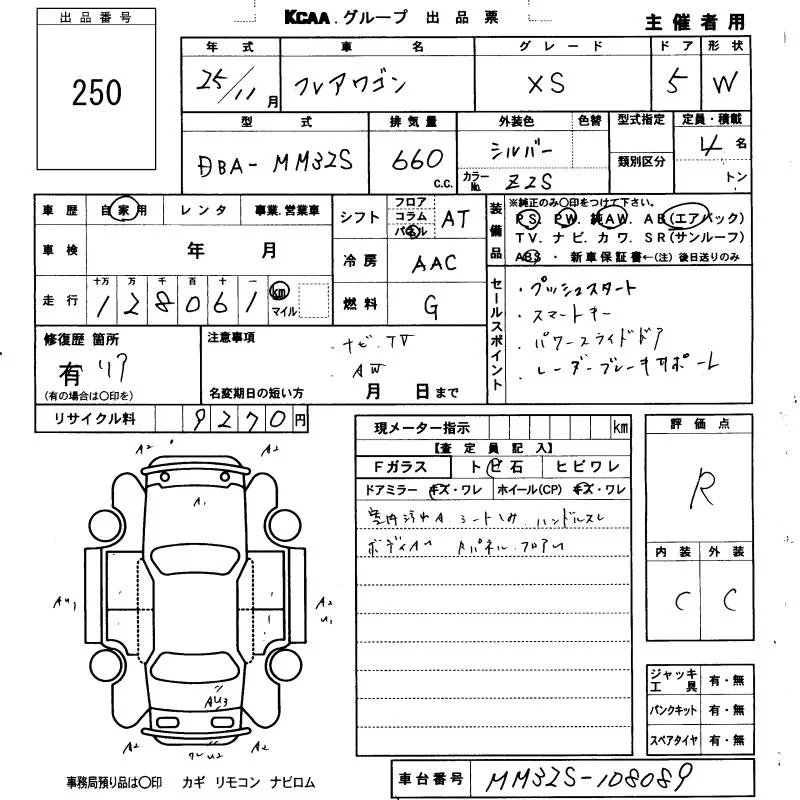 出品番号
250
KCAA.グループ 出品票
主催者用
年式 車名 グレード ドア 形状
25/11月 フレアワゴン XS 5 W
型式 排気量 外装色 色替 型式指定 定員・積載
DBA-MM32S 660 C.C. シルバー 4名
カラーNo. Z2S 類別区分 トン
車歴 自家用 レンタ 事業.営業車
シフト フロア コラム パネル AT
装備品 ※純正のみ○印をつけて下さい。
PS. PW. 純AW. AB(エアバック)
TV. ナビ. カワ. SR(サンルーフ)
ABS ・ 新車保証書←(注) 後日送りのみ
車検 年 月
冷房 AAC
走行 十万 万 千 百 十 一
128061 km マイル
燃料 G
セールスポイント
・プッシュスタート
・スマートキー
・パワースライドドア
・レーダーブレーキサポート
修復歴 箇所
有 リア
(有の場合は○印を)
注意事項
ナビ.TV
AW
名変期日の短い方 月 日まで
リサイクル料 9270円
現メーター指示 km
【査定員記入】
Fガラス トビ石 ヒビワレ
ドアミラー キズ・ワレ ホイール(CP) キズ・ワレ
室内汚れA シートしみ ハンドルスレ
評価点
R
内装 外装
C C
A2 A2
A1
AU1 A2
U1
AU3
A2 U2 A2
ジャッキ工具 有・無
パンクキット 有・無
スペアタイヤ 有・無
事務局預り品は○印 カギ リモコン ナビロム
車台番号 MM32S-108089